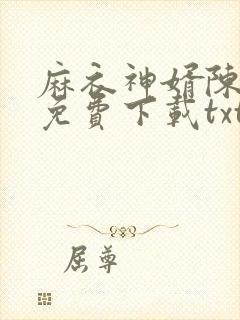 麻衣神婿陳
免費下載txt
屈尊